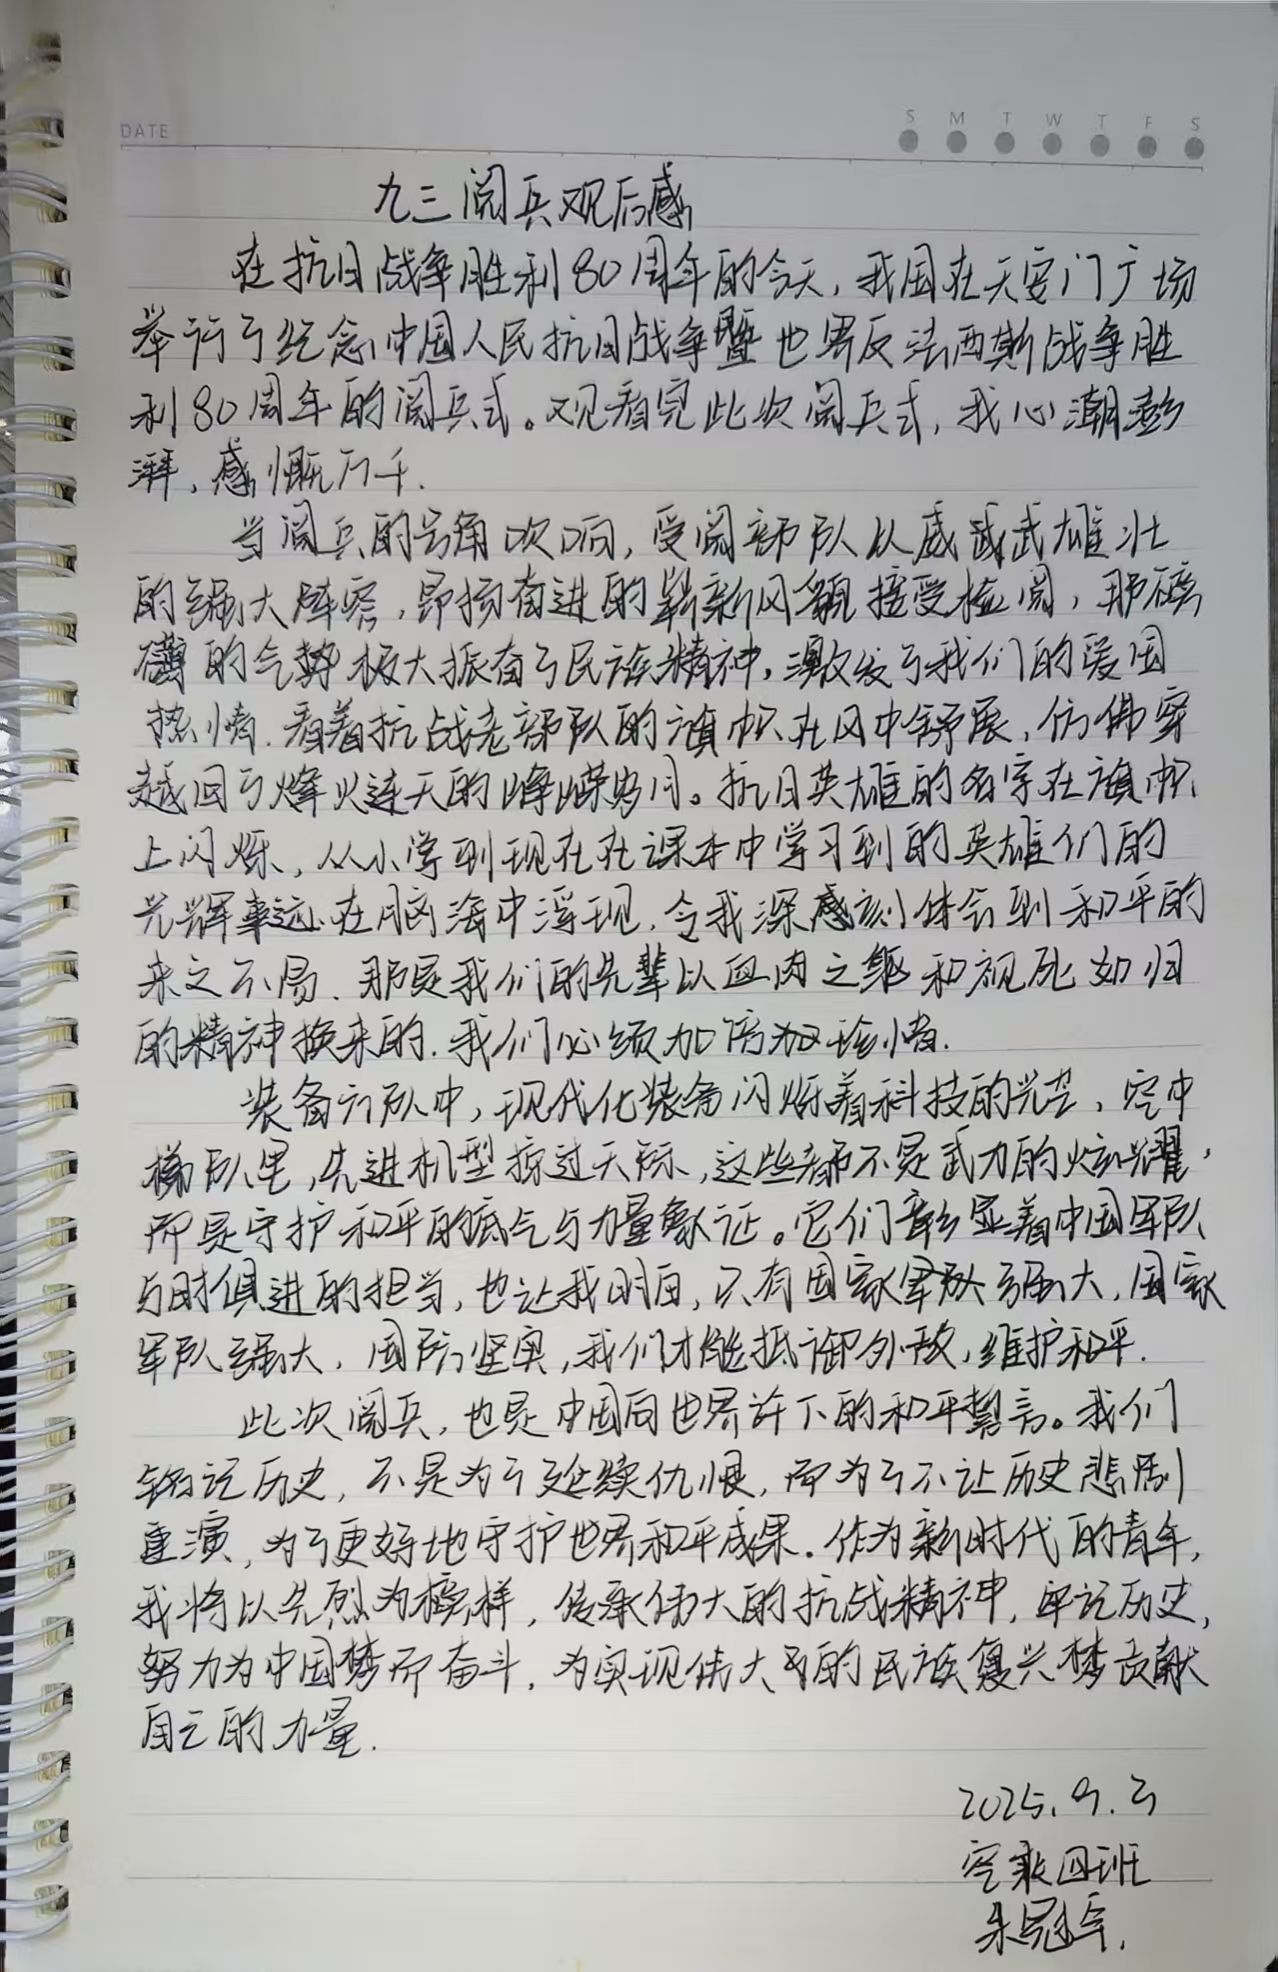 DATE
S M T W T F S
九三阅兵观后感
在抗日战争胜利80周年的今天，我国在天安门广场
举行了纪念中国人民抗日战争暨世界反法西斯战争胜
利80周年的阅兵式。观看完此次阅兵式，我心潮澎
湃，感慨万千.
当阅兵的号角吹响，受阅部队以威武雄壮
的强大阵容，昂扬奋进的崭新风貌接受检阅，那磅
礴的气势极大振奋了民族精神，激发了我们的爱国
热情.看着抗战老部队的旗帜在风中舒展，仿佛穿
越回了烽火连天的峥嵘岁月。抗日英雄的名字在旗帜
上闪烁，从小学到现在在课本中学习到的英雄们的
光辉事迹在脑海中浮现.令我深感刻体会到和平的
来之不易.那是我们的先辈以血肉之躯和视死如归
的精神换来的.我们必须加倍加珍惜.
装备方队中，现代化装备闪烁着科技的光芒，空中
梯队里，先进机型掠过天际，这些都不是武力的炫耀，
而是守护和平的底气与力量象征。它们彰显着中国军队
与时俱进的担当，也让我明白，只有国家军队强大，国家
军队强大，国防坚实，我们才能抵御外敌，维护和平.
此次阅兵，也是中国向世界许下的和平誓言。我们
铭记历史，不是为了延续仇恨，而为了不让历史悲剧
重演，为了更好地守护世界和平成果.作为新时代的青年，
我将以先烈为榜样，传承伟大的抗战精神，牢记历史，
努力为中国梦而奋斗，为实现伟大的民族复兴梦贡献
自己的力量.
2025.9.3
空乘四班
朱冠军.